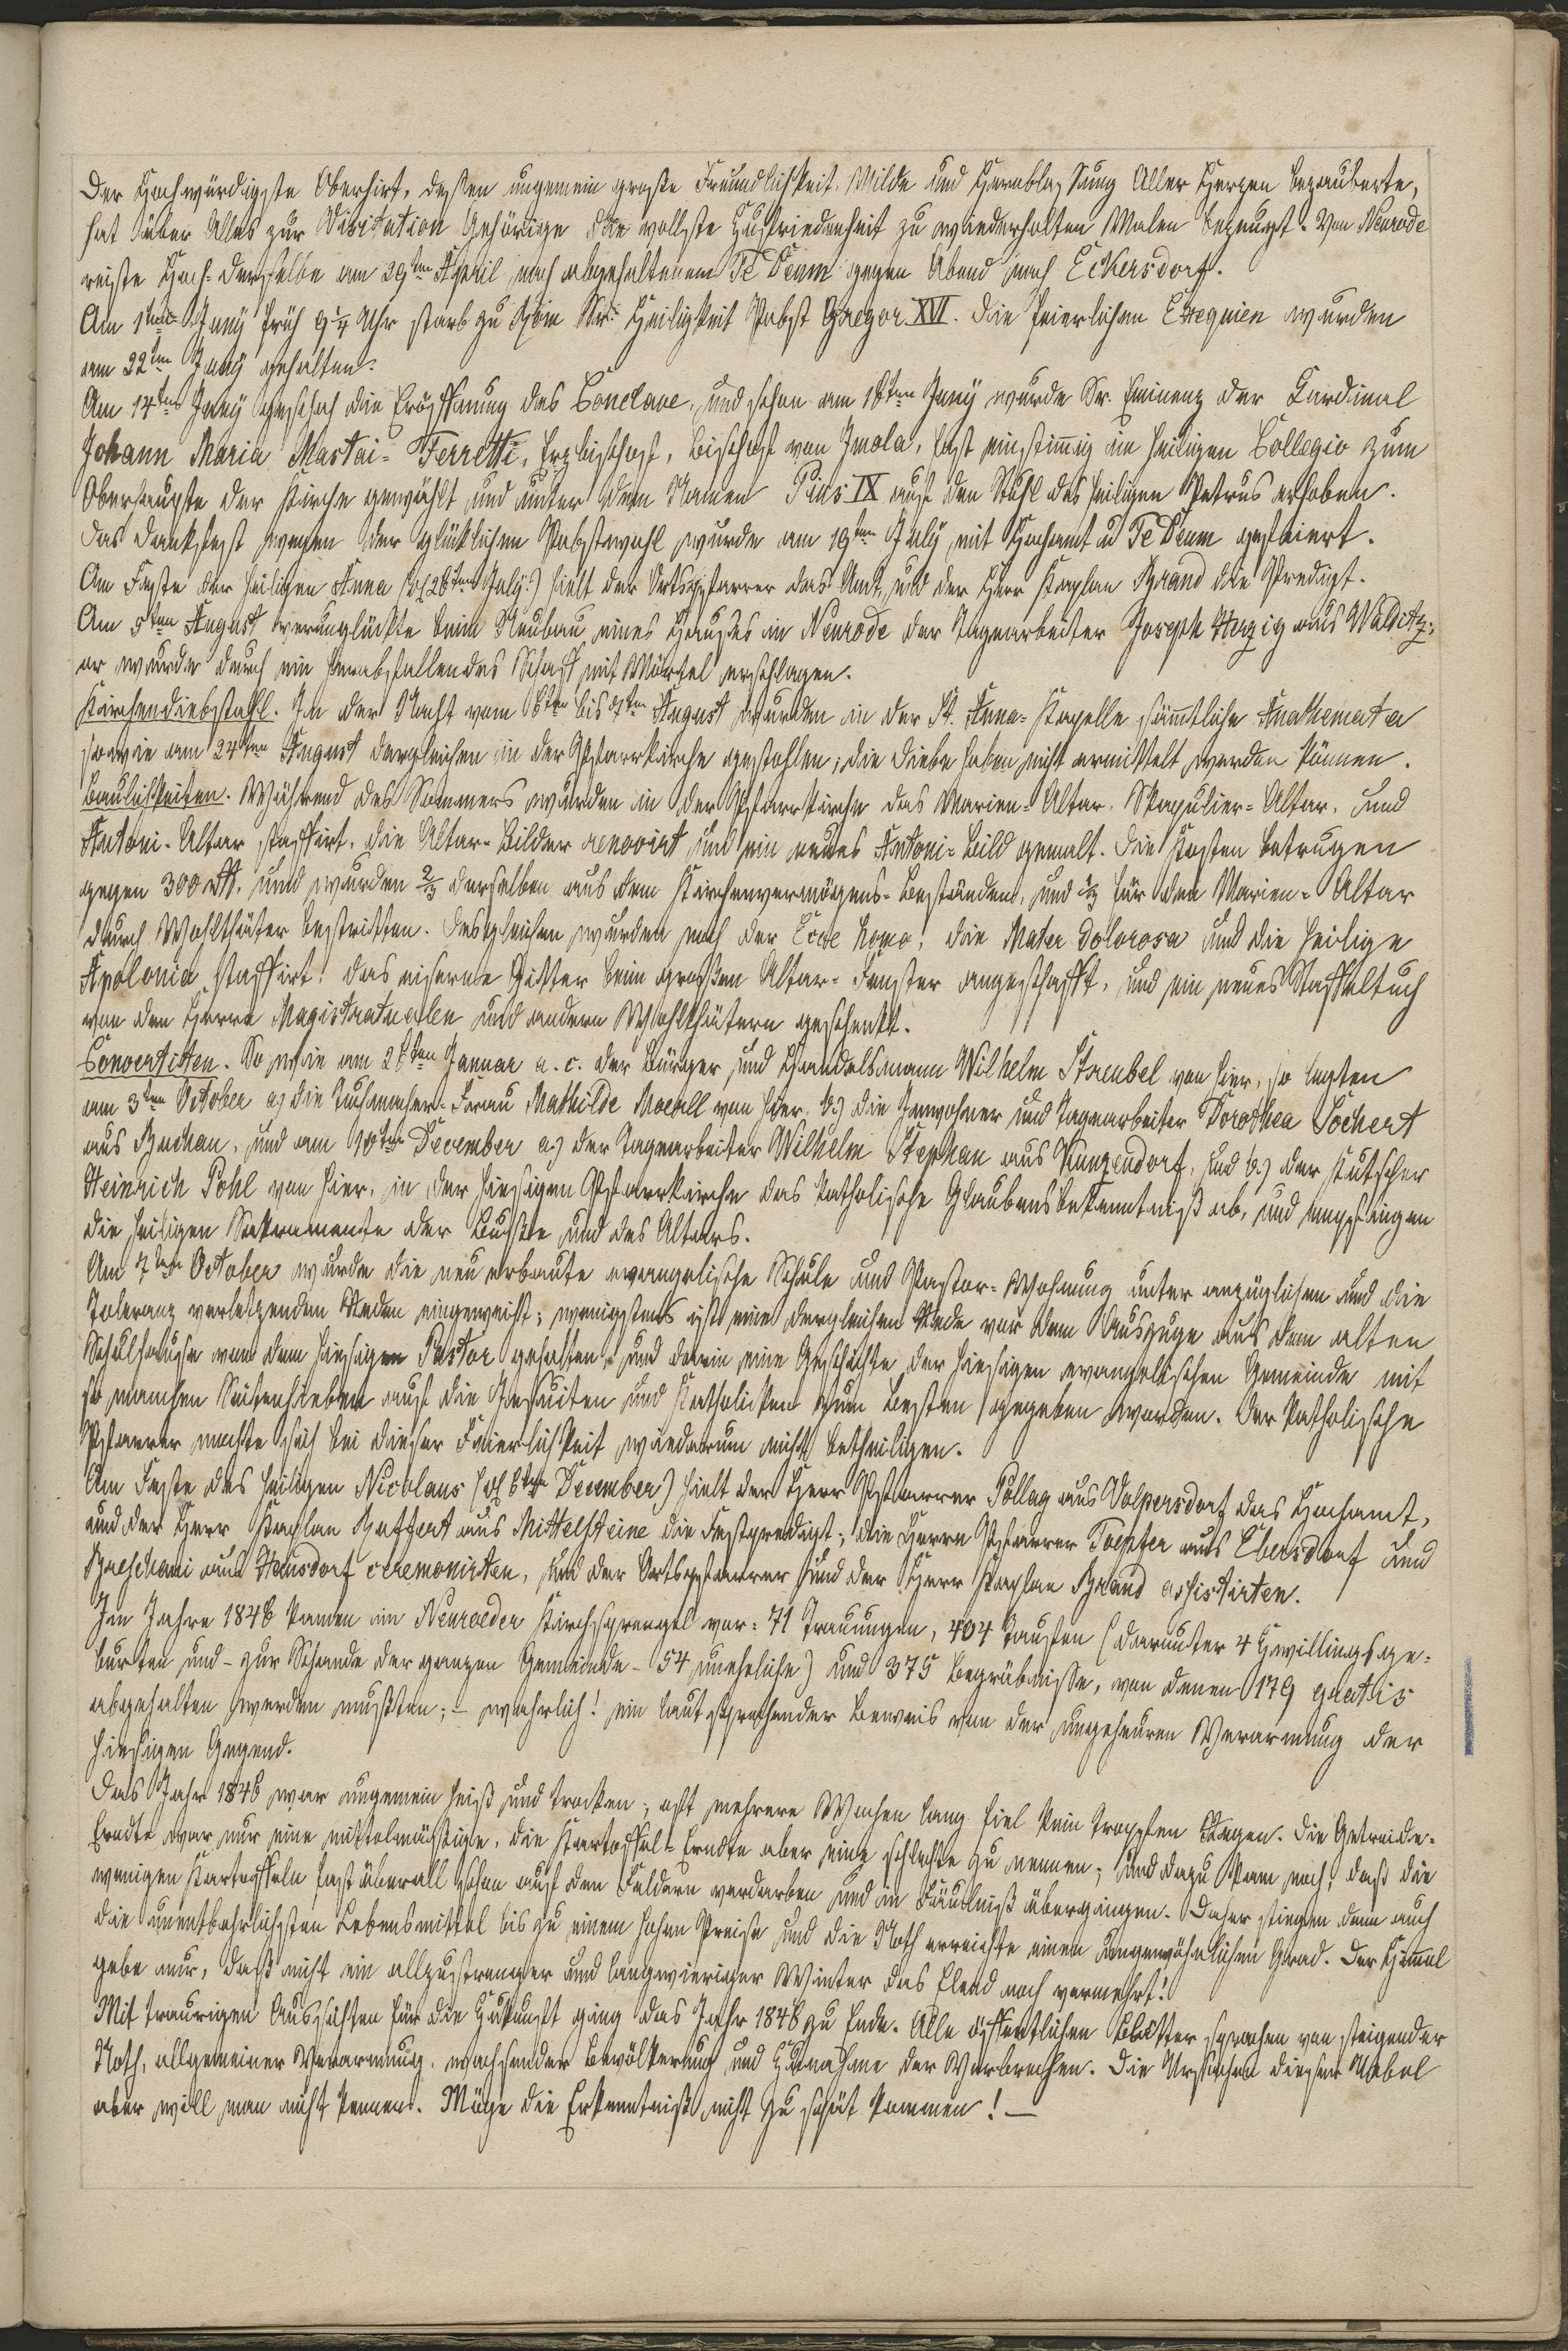 Der Hochwürdigste Oberhirt, deßen ungemein große Freundlichkeit, Milde und Herablassung Aller Herzen bezauberte,
hat über Alles zur Visitation Gehörige die vollste Zufriedenheit zu wiederholten Malen bezeugt. Von Neurode
reiste Hoch-Derselbe am 29ten April nach abgehaltenem Te Deum gegen Abend nach Eckersdorf.
Am 1ten Juny früh 9 1/4 Uhr starb zu Rom Sr. Heiligkeit Pabst Gregor XVI. Die feierlichen Exequien wurden
am 22ten Juny gehalten.
Am 14ten Juny geschah die Eröffnung des Conclave, und schon am 16ten Juny wurde Sr. Eminenz der Cardinal
Johann Maria Mastai-Ferretti, Erzbischof, Bischof von Imola, fast einstimig im heiligen Collegio zum
Oberhaupte der Kirche gewählt und unter dem Namen Pius IX auf den Stuhl des heiligen Petrus erhoben.
Das Dankfest wegen der glücklichen Pabstwahl wurde am 19ten July mit Hochamt u Te Deum gefeiert.
Am Feste der heiligen Anna (26ten July) hielt der Ortspfarrer das Amt, und der Herr Kaplan Brand die Predigt.
Am 5ten August verunglückte beim Neubau eines Hauses in Neurode der Tagearbeiter Joseph Herzig aus Walditz;
er wurde durch ein herabfallendes Schaff mit Mörtel erschlagen.
Kirchendiebstahl. In der Nacht vom 6ten bis 7ten August wurden in der St. Anna-Kapelle sämtliche Anathemata
sowie am 24ten August dergleichen in der Pfarrkirche gestohlen; die Diebe haben nicht ermittelt werden können.
Baulichkeiten. Während des Sommers wurden in der Pfarrkirche das Marien-Altar, Skapulier-Altar, und
Antoni-Altar staffirt, die Altar-Bilder renovirt und ein neues Antoni-Bild gemalt. Die Kosten betrugen
gegen 300 Rt. und wurden 2/3 derselben aus dem Kirchenvermögens-Beständen, und 1/3 für den Marien-Altar
durch Wohlthäter bestritten. Desgleichen wurden noch der Ecce homo, die Mater dolorosa und die heilige
Apolonia staffirt. das eiserne Gitter beim großen Altar-Fenster angeschafft, und ein neues Staffeltuch
von den Herrn Magistratualen und andern Wohlthätern geschenkt.
Convertiten. So wie am 26ten Januar a. c. der Bürger und Handelsmann Wilhelm Strenbel von hier, so legten
am 3ten October a) die Tuchmacher-Frau Mathilde Moeall von hier, b.) die Inwohner und Tagearbeiter Dorothea Tochert
aus Buchau, und am 10ten December a.) der Tagearbeiter Wilhelm Stephan aus Kunzendorf, und b.) der Kutscher
Heinrich Pohl von hier, in der hiesigen Pfarrkirche das katholische Glaubensbekenntniß ab, und empfingen
die heiligen Sakramente der Buße und des Altars.
Am 7ten October wurde die neu erbaute evangelische Schule und Pastor-Wohnung unter anzüglichen und die
Toleranz verletzenden Reden eingeweiht; wenigstens ist eine dergleichen Rede vor dem Auszuge aus dem alten
Schulhause von dem hiesigen Pastor gehalten, und darin eine Geschichte der hiesigen evangelischen Gemeinde mit
so manchen Seitenhieben auf die Jesuiten und Katholiken zum Besten gegeben worden. Der katholische
Pfarrer mochte sich bei dieser Feierlichkeit wiederum nicht betheiligen.
Am Feste des heiligen Nicolaus (6ten December) hielt der Herr Pfarrer Pollag aus Volpersdorf das Hochamt,
und der Herr Kaplan Raffert aus Mittelsteine die Festpredigt; die Herrn Pfarrer Toepfer aus Ebersdorf und
aus Hausdorf ceremonirten, und der Ortspfarrer und der Herr Kaplan Brand assistirten.
Im Jahre 1846 kamen im Neuroeder Kirchsprengel vor: 71 Trauungen, 404 Taufen (darunter 4 Zwillingsge-
burten und - zur Schande der ganzen Gemeinde - 54 uneheliche) und 375 Begräbnisse, von denen 179 gratis
abgehalten werden mußten; - wahrlich! ein laut sprechender Beweis von der ungeheuren Verarmung der
hiesigen Gegend.
Das Jahr 1846 war ungemein heiß und trocken; oft mehrere Wochen lang fiel kein Tropfen Regen. Die Getreide-
Erndte war nur eine mittelmäßige, die Kartoffel-Erndte aber eine schlechte zu nennen; und dazu kam noch, daß die
wenigen Kartoffeln fast überall schon auf den Feldern verdarben und in Fäulniß übergingen. Daher stiegen denn auch
die unentbehrlichsten Lebensmittel bis zu einem hohen Preise und die Noth erreichte einen ungewöhnlichen Grad. Der Himel
gebe nur, daß nicht ein allzustrenger und langwieriger Winter das Elend noch vermehrt!
Mit traurigen Aussichten für die Zukunft ging das Jahr 1846 zu Ende. Alle öffentlichen Blätter sprachen von steigender
Noth, allgemeiner Verarmung, wachsender Bevölkerung und Zunahme der Verbrechen. Die Ursachen dieser Uebel
aber will man nicht kennen. Möge die Erkenntniß nicht zu spät kommen! -